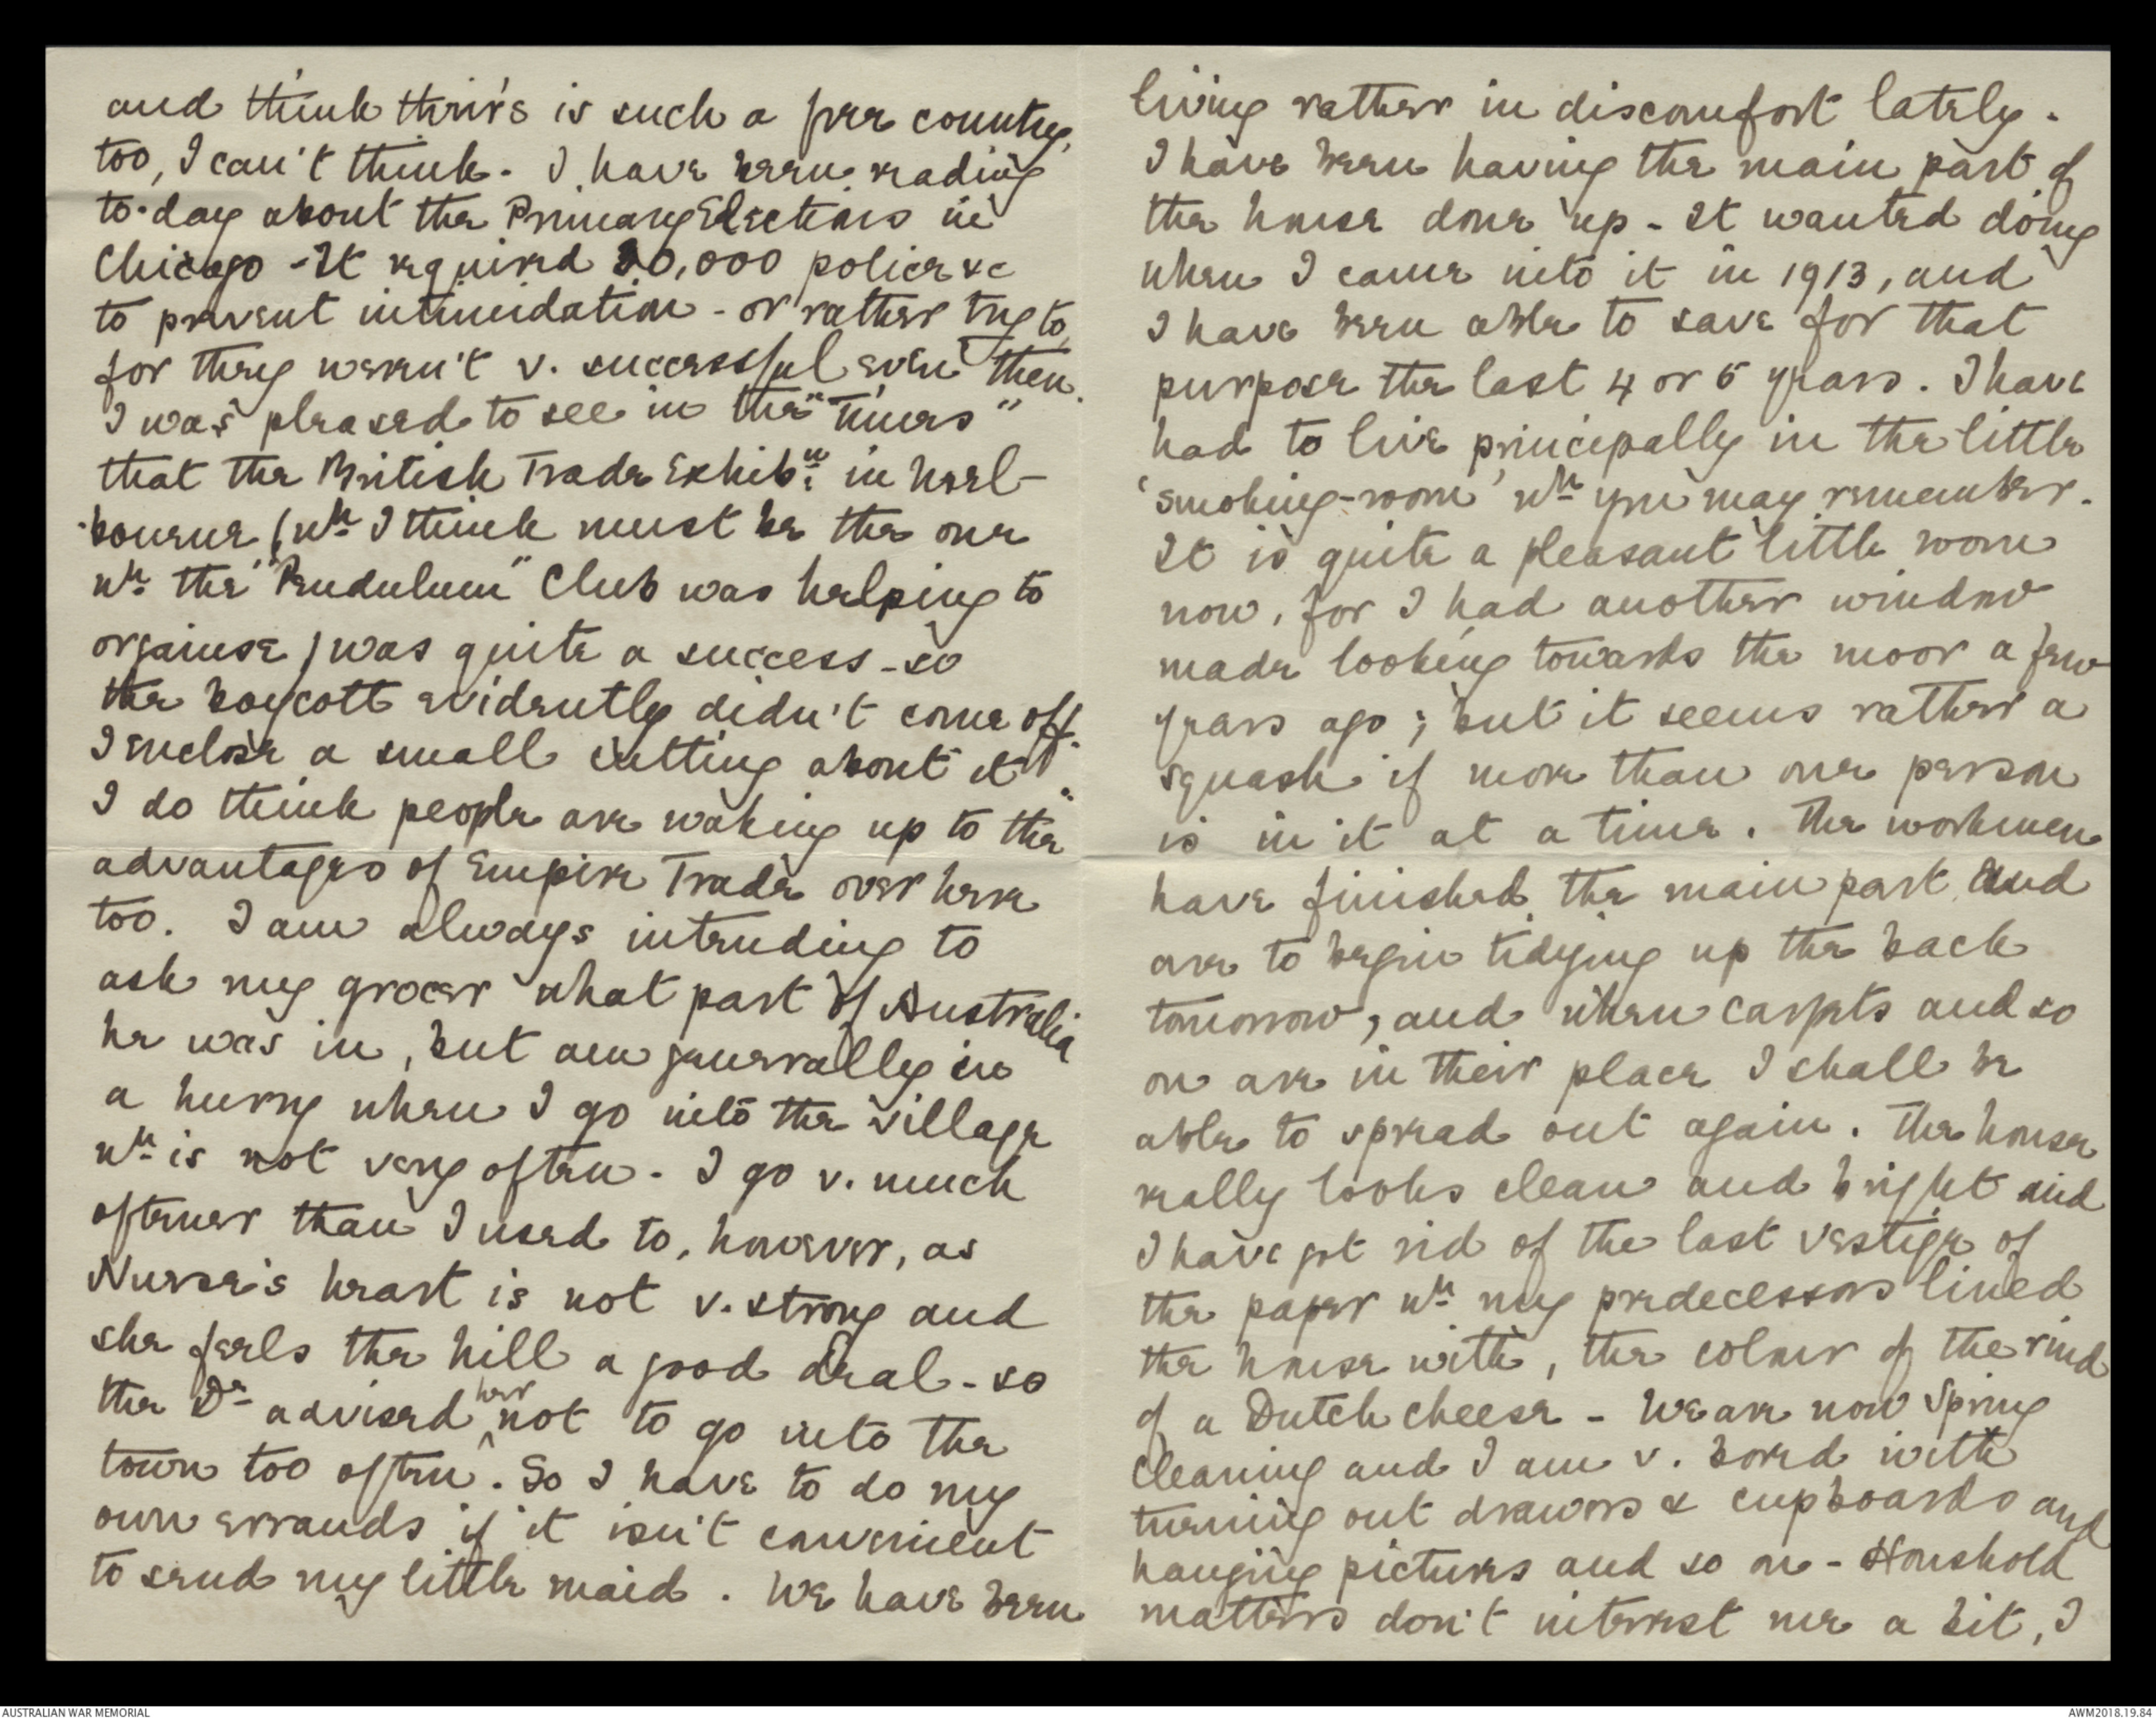 and think their's is such a free country,
too, I can't think. I have been reading
to-day about the Primary Elections in
Chicago - It required 20,000 police &c
to prevent intimidation - or rather try to,
for they weren't v. successful even then.
I was pleased to see in the "Times"
that the British Trade Exhibn. in Mel-
-bourne (wh I think must be the one
wh the "Pendulum" Club was helping to
organise) was quite a success - so
the boycott evidently didn't come off.
I enclose a small cutting about it.
I do think people are waking up to the
advantages of Empire Trade over here
too. I am always intending to
ask my grocer what part of Australia
he was in, but am generally in
a hurry when I go into the village
wh is not very often. I go v. much
oftener than I used to, however, as
Nurse's heart is not v. strong and
she feels the hill a good deal - so
the Dr advised her not to go into the
town too often. So I have to do my
own errands if it isn't convenient
to send my little maid. We have been
living rather in discomfort lately.
I have been having the main part of
the house done up - It wanted doing
when I came into it in 1913, and
I have been able to save for that
purpose the last 4 or 5 years. I have
had to live principally in the little
'smoking-room' wh you may remember.
It is quite a pleasant little room
now, for I had another window
made looking towards the moor a few
years ago; but it seems rather a
squash if more than one person
is in it at a time. The workmen
have finished the main part and
are to begin tidying up the back
tomorrow, and when carpets and so
on are in their place I shall be
able to spread out again. The house
really looks clean and bright and
I have got rid of the last vestige of
the paper wh my predecessors lined
the house with, the colour of the rind
of a Dutch cheese - We are now Spring
cleaning and I am v. bored with
turning out drawers & cupboards and
hanging pictures and so on - Household
matters don't interest me a bit, I
AUSTRALIAN WAR MEMORIAL
AWM2018.19.84